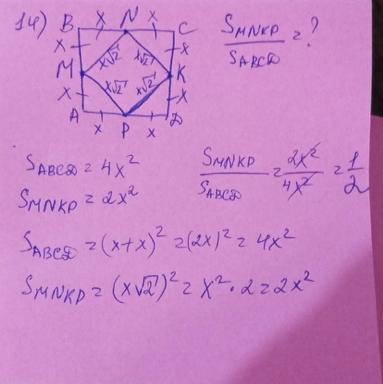 14) B x N x C
x x
M x√2 x√2 K
x x√2 x√2 x
A x P x D
S_MNKP / S_ABCD = ?
S_ABCD = 4x²
S_MNKP = 2x²
S_MNKP / S_ABCD = 2x² / 4x² = 1/2
S_ABCD = (x+x)² = (2x)² = 4x²
S_MNKP = (x√2)² = x² · 2 = 2x²